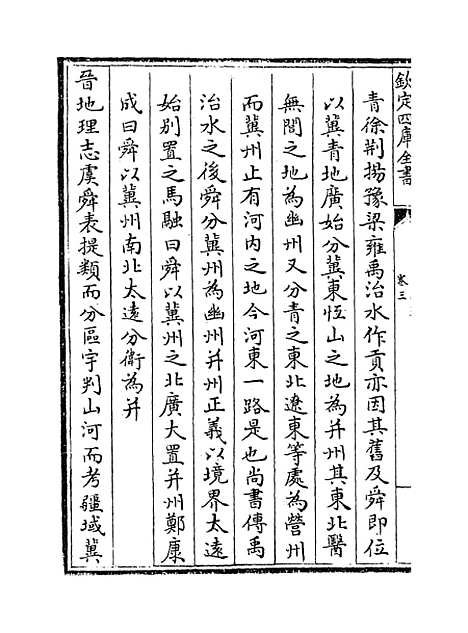 欽定四庫全書
卷三
青徐荆揚豫梁雍禹治水作貢亦因其舊及舜即位
以冀青地廣始分冀東恆山之地為并州其東北醫
無閭之地為幽州又分青之東北遼東等處為營州
而冀州止有河内之地今河東一路是也尚書傳禹
治水之後舜分冀州為幽州并州正義以境界太遠
始别置之馬融曰舜以冀州之北廣大置并州鄭康
成曰舜以冀州南北太遠分衛為并
晉地理志虞舜表提類而分區宇判山河而考疆域冀